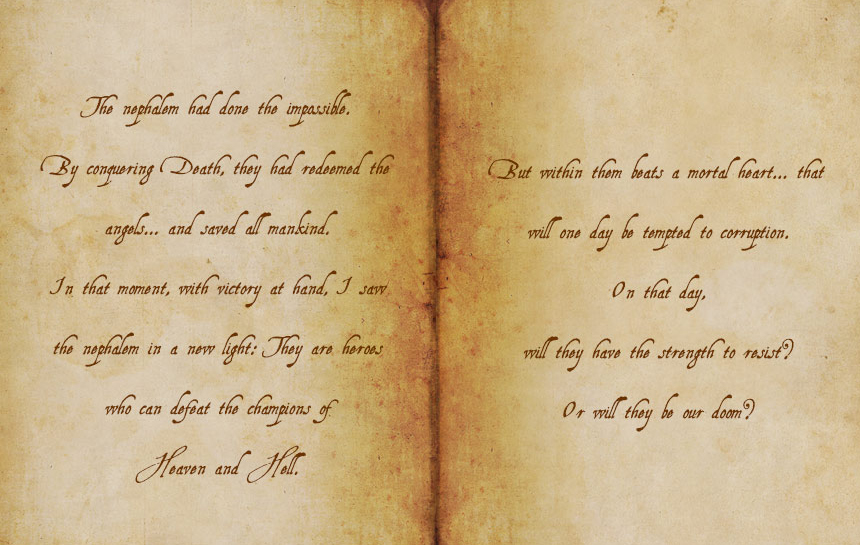 The nephalem had done the impossible.
By conquering Death, they had redeemed the
angels... and saved all mankind.
In that moment, with victory at hand, I saw
the nephalem in a new light: They are heroes
who can defeat the champions of
Heaven and Hell.
But within them beats a mortal heart... that
will one day be tempted to corruption.
On that day,
will they have the strength to resist?
Or will they be our doom?